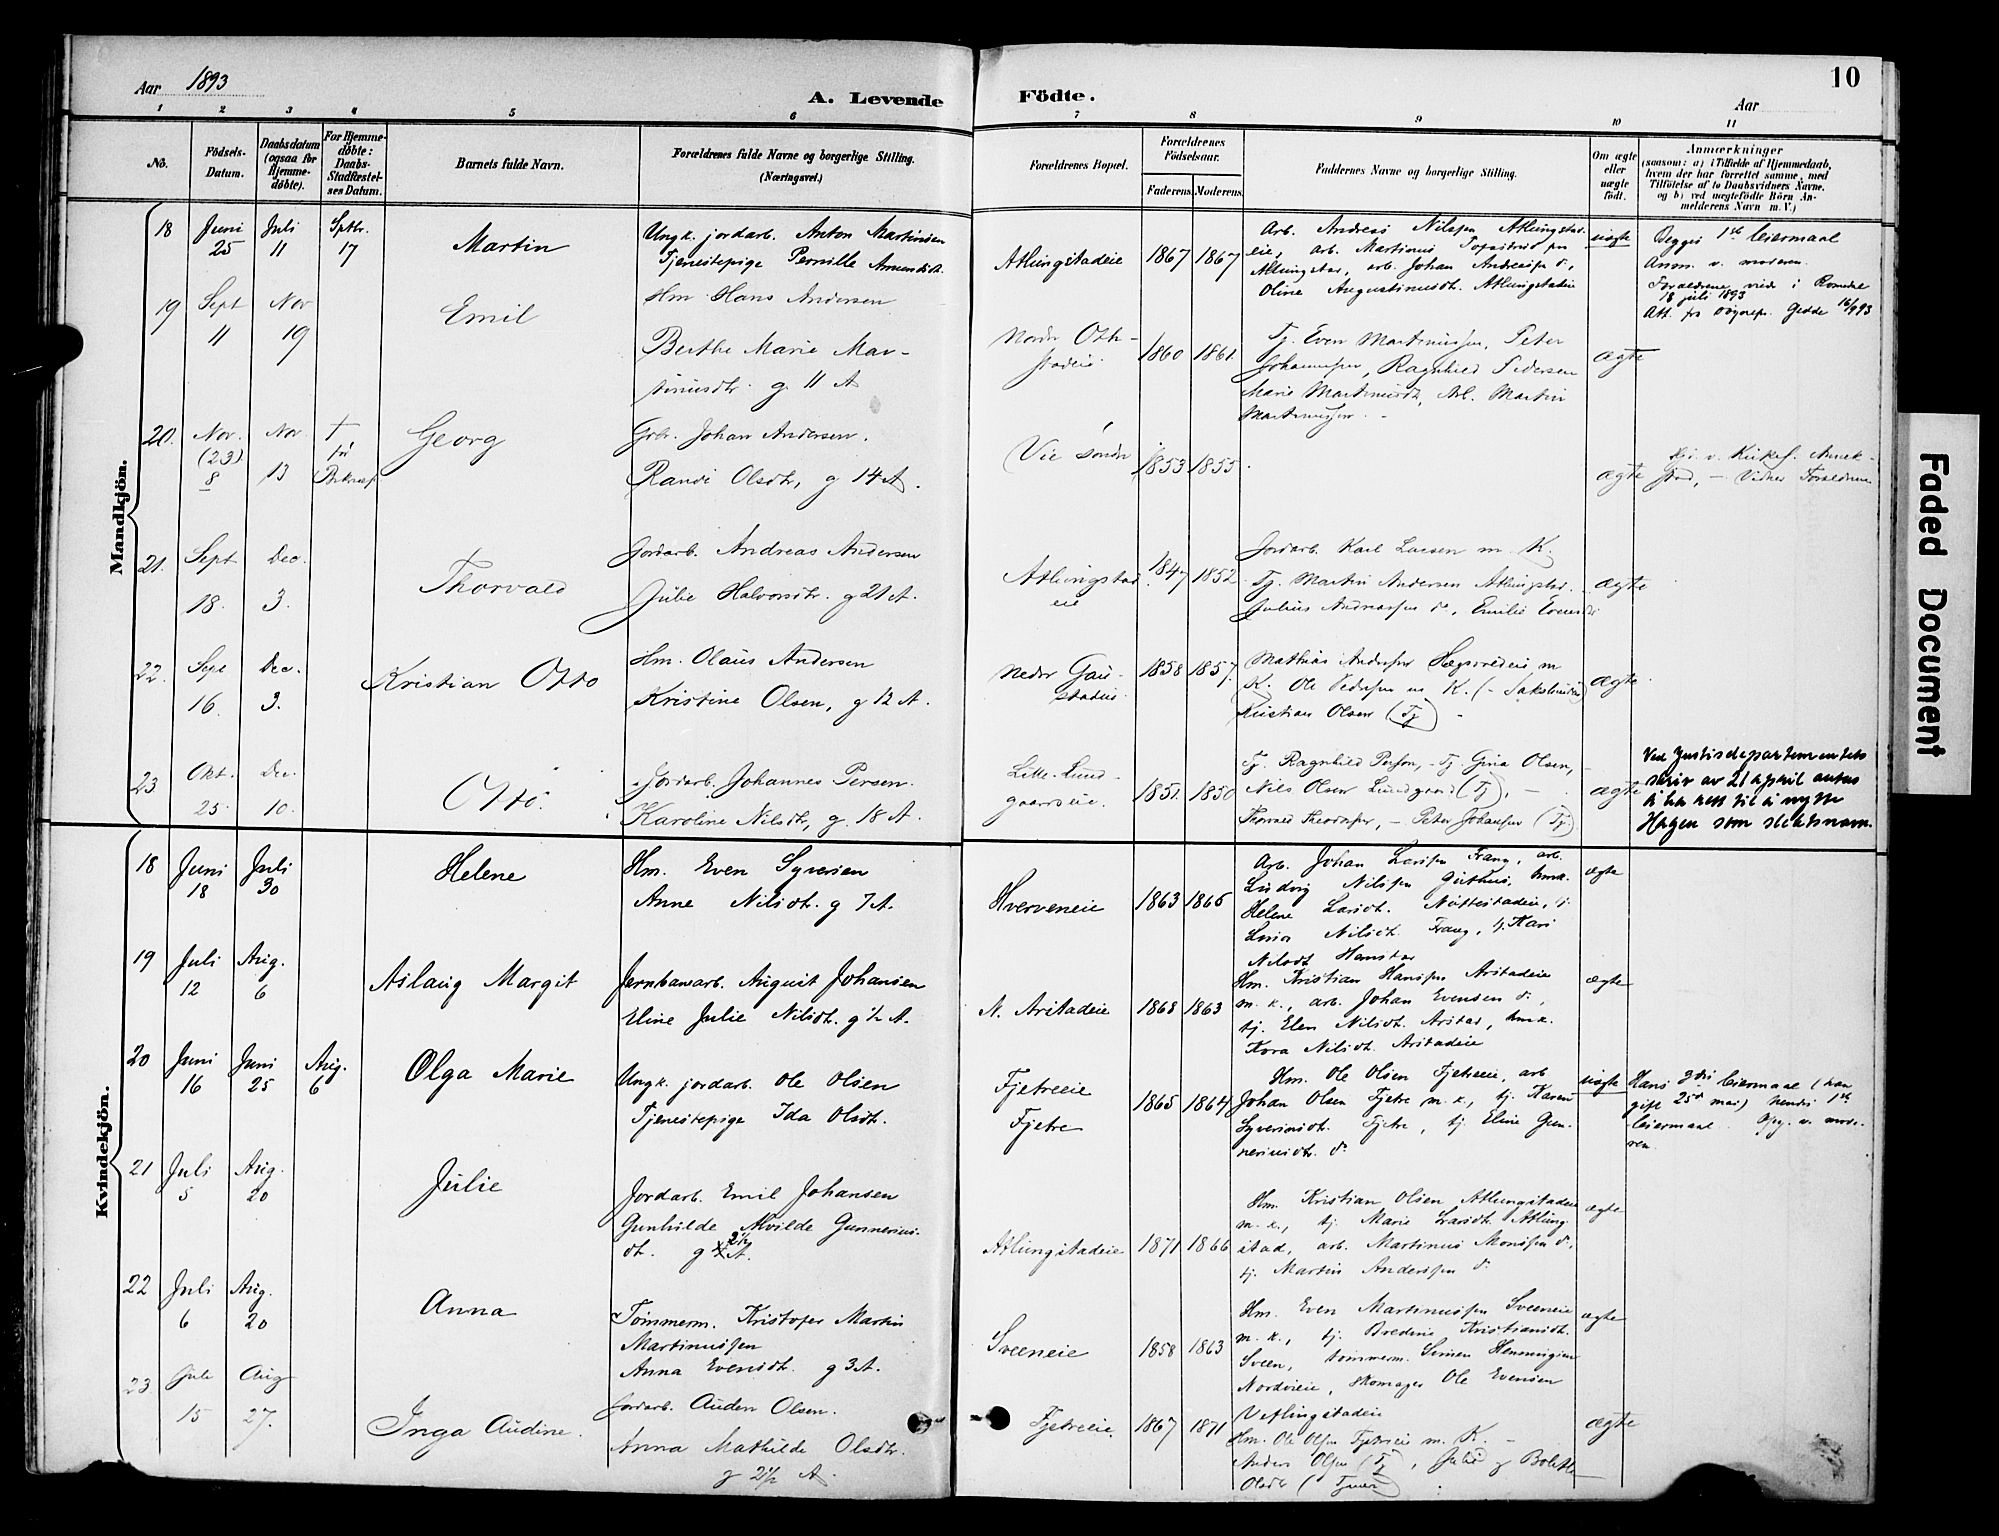 Aar 1893
A. Levende
Födte.
Aar
10
1 2 3 4 5 6
7 8 9 10 11
No.
Födsels-
Datum.
Daabsdatum
(ogsaa for
Hjemme-
døbte).
For Hjemme-
døbte:
Daabs-
Stadfæstel-
ses Datum.
Barnets fulde Navn.
Forældrenes fulde Navne og borgerlige Stilling.
(Næringsvei.)
Forældrenes Bopæl.
Forældrenes
Födselsaar.
Faderens. Moderens.
Faddernes Navne og borgerlige Stilling.
Om ægte
eller
uægte
födt.
Anmærkninger
(saasom: a) i Tilfælde af Hjemmedaab,
hvem der har forrettet samme, med
Tilföielse af to Daabsvidners Navne,
og b) ved uægtefödte Börn An-
melderens Navn m. V.)
Mandkjön.
18 Juni 25 Juli 11 Septbr. 17
Martin
Ungk. jordarb. Anton Martinsen
Tjenestepige Pernille Amundsdt.
Atlungstadeie 1867 1867
Arb. Andreas Nilsen Atlungstad-
eie, arb. Martinus
Atlungstad, arb. Johan Andreassen do,
Oline Augustinusdt. Atlungstadeie
uægte
Begges 1ste leiermaal
Anm. v. moderen.
Forældrene viede i Romedal
18 juli 1893
Att. fra sognepr. Gedde 16/9 93
19 Sept 11 Nov 19
Emil
Hm. Hans Andersen
Berthe Marie Mar-
tinusdtr. g. 11 A
Nordr Oth-
stadeie 1860 1861
Tj. Even Martinussen, Peter
Johannesen, Ragnhild Pedersen
Marie Martinusdt, Arb. Martin
Martinussen. -
ægte
20. Nov. (23) 8 Nov 13 †
før
Georg
Gbr. Johan Andersen.
Randi Olsdtr, g 14 A.
Vie søndr 1853 1855.
ægte
v. Kirkes.
stad, - Vidner Forældrene
21. Sept 18. Dec. 3.
Thorvald
Jordarb. Andreas Andersen
Julie Halvorsdtr. g 21 A.
Atlungstad
eie 1847 1852
Jordarb. Karl Larsen m. K.
Tj. Martin Andersen Atlungstad.
Julius Andreassen do, Emilie Evensdt
ægte
22. Sept 16. Dec. 3.
Kristian Otto
Hm. Olaus Andersen
Kristine Olsen, g 12 A.
Nedr Gau-
stadeie. 1858 1857.
Mathias Andersen m
K. Ole Pedersen m K.
Kristian Olsen (Tj) -
ægte.
23 Okt. 25. Dec. 10.
Otto.
Jordarb. Johannes Persen.
Karoline Nilsdtr, g. 18 A.
Lille-Lund-
gaardseie. 1851. 1850
Tj. Ragnhild Persen, - Tj. Gina Olsen, -
Nils Olsen Lundgaard (Tj), -
Thorvald Theodorsen, - Peter Johansen (Tj)
ægte
Ved Justisdepartementets
skriv av 21 april antas
å ha rett til å nytte
Hagen som slektsnavn.
Kvindekjön.
18 Juni 18 Juli 30
Helene
Hm. Even Syversen
Anne Nilsdt. g 7 A.
Hverveneie 1863 1865
Arb. Johan Larsen Frang, arb.
Ludvig Nilsen hmk.
Helene Larsdt. tj.
Nilsdt. Frang, tj. Kari
Nilsdt. Hanstad
ægte
19 Juli 12 Aug. 6
Aslaug Margit
Jernbanearb. August Johansen
Eline Julie Nilsdt. g ½ A.
N. Arstadeie 1868 1863
Hm. Kristian Hansen Arstadeie
m. k., arb. Johan Evensen do,
tj. Elen Nilsdt. Arstad, hmk.
Kora Nilsdt. Arstadeie
ægte
20 Juni 16 Juni 25 Aug. 6
Olga Marie
Ungk. jordarb. Ole Olsen
Tjenestepige Ida Olsdt.
Fjetreeie
Fjetre 1865 1864
Hm. Ole Olsen Fjetreeie, arb
Johan Olsen Fjetre m. k., tj. Karen
Syverinsdt. Fjetre, tj. Eline Gun-
neriusdt. do
uægte
Hans 3die leiermaal (han
gift 25de mai) hendes 1ste
leiermaal. Opg. v. mode-
ren.
21 Juli 5 Aug. 20
Julie
Jordarb. Emil Johansen
Gunhilde Alvilde Gunnerius-
dt. g 2½ A.
Atlungstadeie 1871 1866
Hm. Kristian Olsen Atlungstadeie
m. k., tj. Marie Larsdt. Atlung-
stad, arb. Martinus Monsen do,
tj. Martin Anderssen do
ægte
22 Juli 6 Aug. 20
Anna
Tømmerm. Kristofer Martin
Martinussen
Anna Evensdt. g 3 A.
Sveeneie 1858 1863
Hm. Even Martinussen Sveeneie
m. k., tj. Bredine Kristiansdt.
Sveen, tømmerm. Simen Henningsen
Nordvieie, skomager Ole Evensen
Vetlingstadeie
ægte
23 Juli 15 Aug 27.
Inga Audine.
Jordarb. Auden Olsen.
Anna Mathilde Olsdtr.
g 2½ A.
Fjetreeie. 1867 1871
Hm. Ole Olsen Fjetreeie m. K. -
Anders Olsen (Tj), Julie og Bolette
Olsdt (Tjener)
ægte
Faded Document